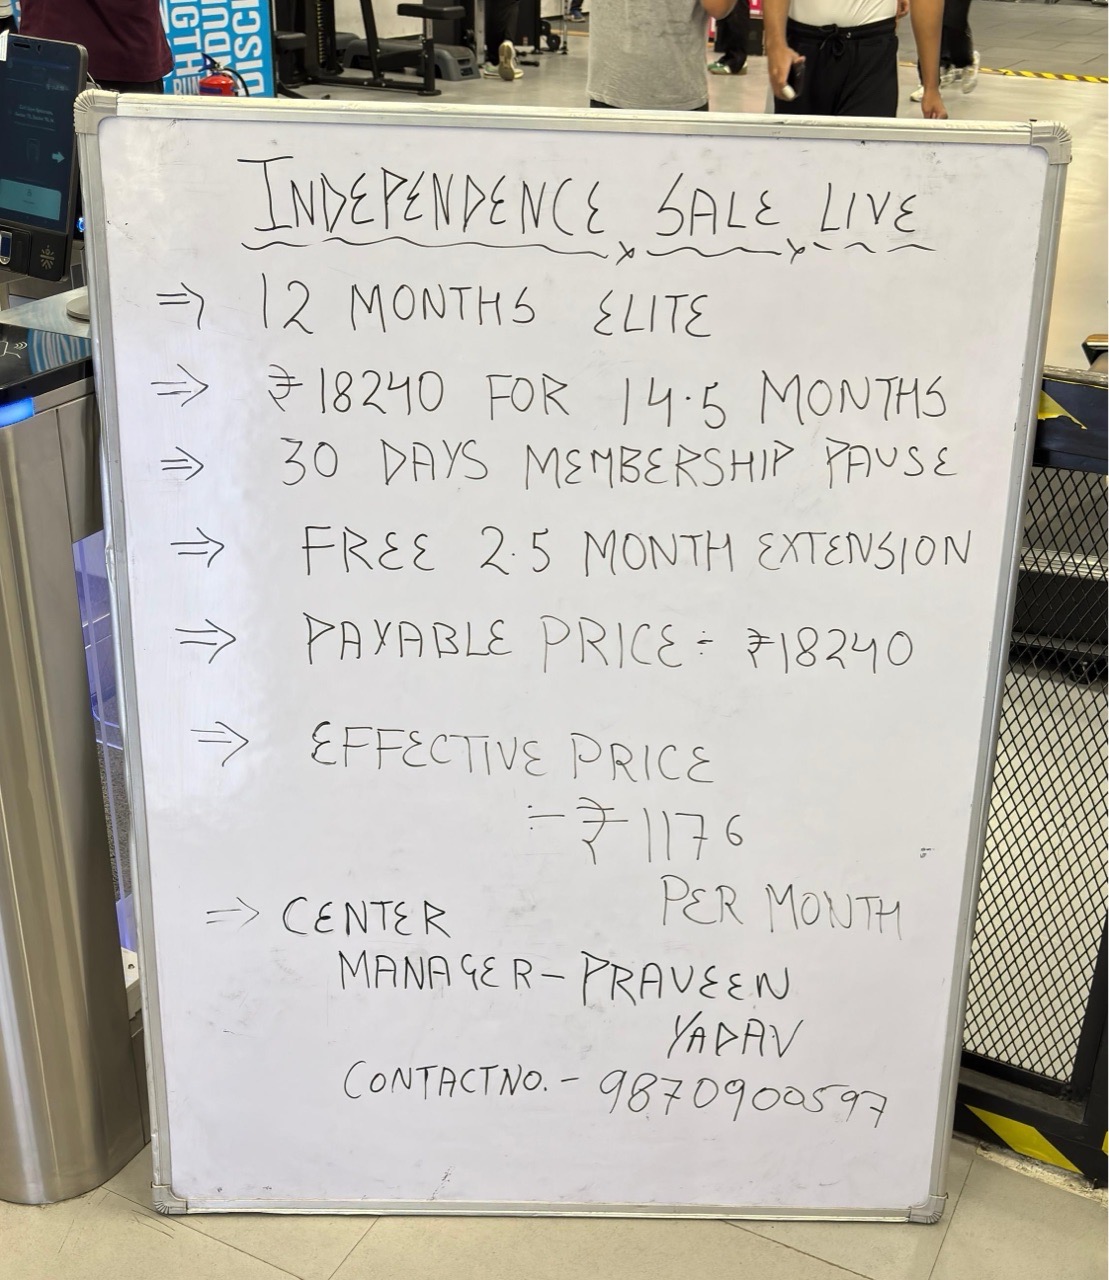 NGTH
RUN
DOUR
DISCI
INDEPENDENCE SALE LIVE
⇒ 12 MONTHS ELITE
⇒ ₹18240 FOR 14.5 MONTHS
⇒ 30 DAYS MEMBERSHIP PAUSE
⇒ FREE 2.5 MONTH EXTENSION
⇒ PAYABLE PRICE÷ ₹18240
⇒ EFFECTIVE PRICE
÷ ₹1176
PER MONTH
⇒ CENTER
MANAGER - PRAVEEN
YADAV
CONTACT NO. - 9870900597